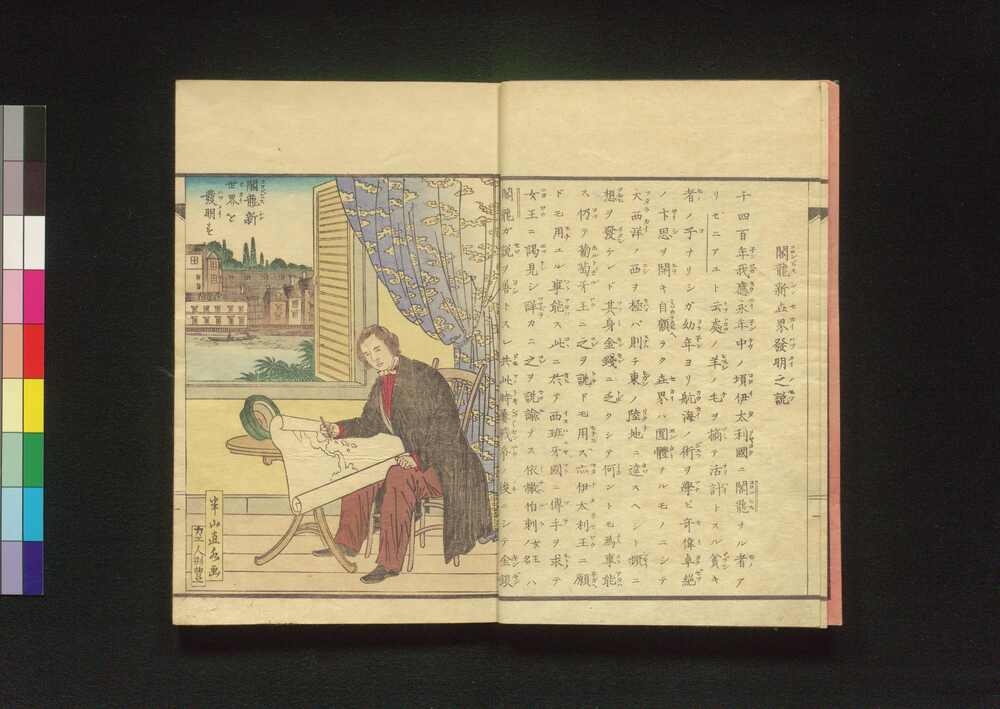 閣龍新世界發明之説
千四百年我應永年中ノ頃伊太利國ニ閣龍ナル者ア
リゼニアユト云處ノ羊ノ毛ヲ摘テ活計トスル貧キ
者ノ子ナリシガ幼年ヨリ航海ノ術ヲ學ビ奇偉卓絶
ノ才思ヲ開キ自顧ラク世界ハ圓體ナルモノニシテ
大西洋ノ西ヲ極バ則チ東ノ陸地ニ達スヘシト爰ニ
想ヲ發ケレド其身金錢ニ乏クシテ何ントモ為事能
ス仍テ葡萄牙王ニ之ヲ説ドモ用ス亦伊太利王ニ願
ドモ用ユル事能ス此ニ於テ西班牙國ニ傳手ヲ求テ
女王ニ謁見シ詳カニ之ヲ説諭テス依撒伯剌ノ女王ハ
閣龍ガ説ヲ善トスレ共此時
ノ後ニシテ金銀
閣龍新
世界を
發明す
半山直水画